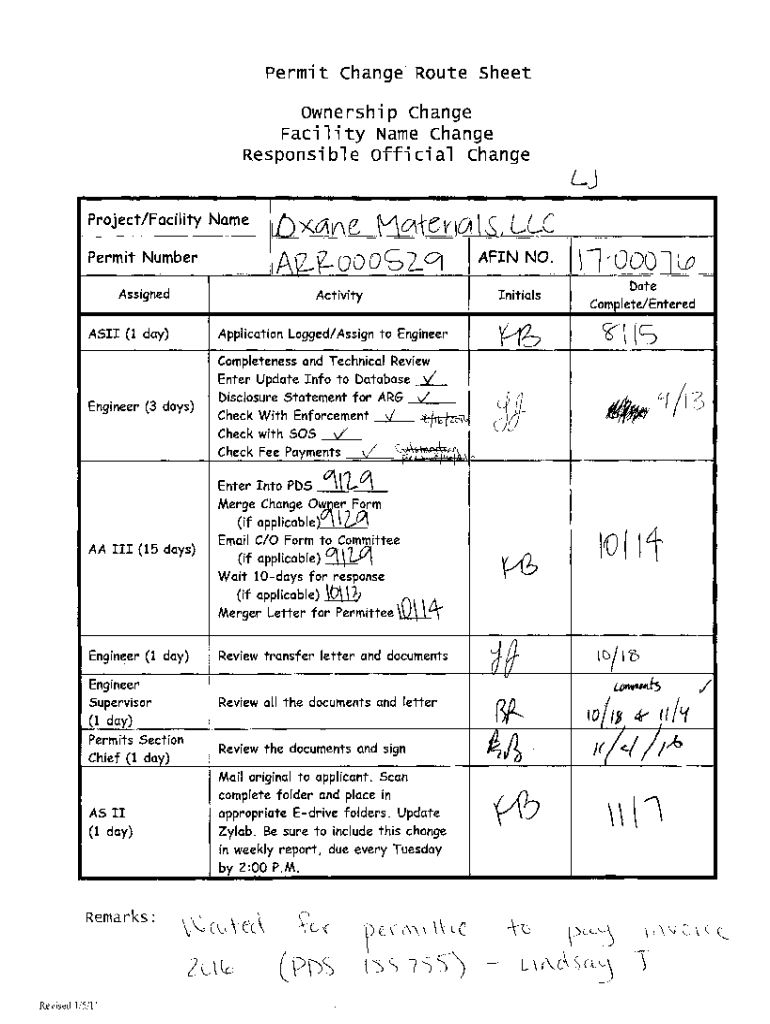 Permit Change Route Sheet
Ownership Change
Facility Name Change
Responsible Official Change
LJ
Project/Facility Name Oxane Materials, LLC
Permit Number ARR000529 AFIN NO. 17-00076
Assigned Activity Initials Date Complete/Entered
ASII (1 day) Application Logged/Assign to Engineer KB 8/15
Engineer (3 days)
Completeness and Technical Review
Enter Update Info to Database ✓
Disclosure Statement for ARG ✓
Check With Enforcement ✓
Check with SOS ✓
Check Fee Payments ✓
JJ 9/13
AA III (15 days)
Enter Into PDS 9/29
Merge Change Owner Form
(if applicable) 9/29
Email C/O Form to Committee
(if applicable) 9/29
Wait 10-days for response
(if applicable) 10/13
Merger Letter for Permittee 10/14
KB 10/14
Engineer (1 day) Review transfer letter and documents JJ 10/18
Engineer
Supervisor
(1 day)
Review all the documents and letter BR
comments ✓
10/18 & 11/4
Permits Section
Chief (1 day)
Review the documents and sign 11/4/16
AS II
(1 day)
Mail original to applicant. Scan
complete folder and place in
appropriate E-drive folders. Update
Zylab. Be sure to include this change
in weekly report, due every Tuesday
by 2:00 P.M.
KB 11/7
Remarks: Waited for permittee to pay invoice
2016 (PDS 155755) - Lindsay J
Revised 1/5/1